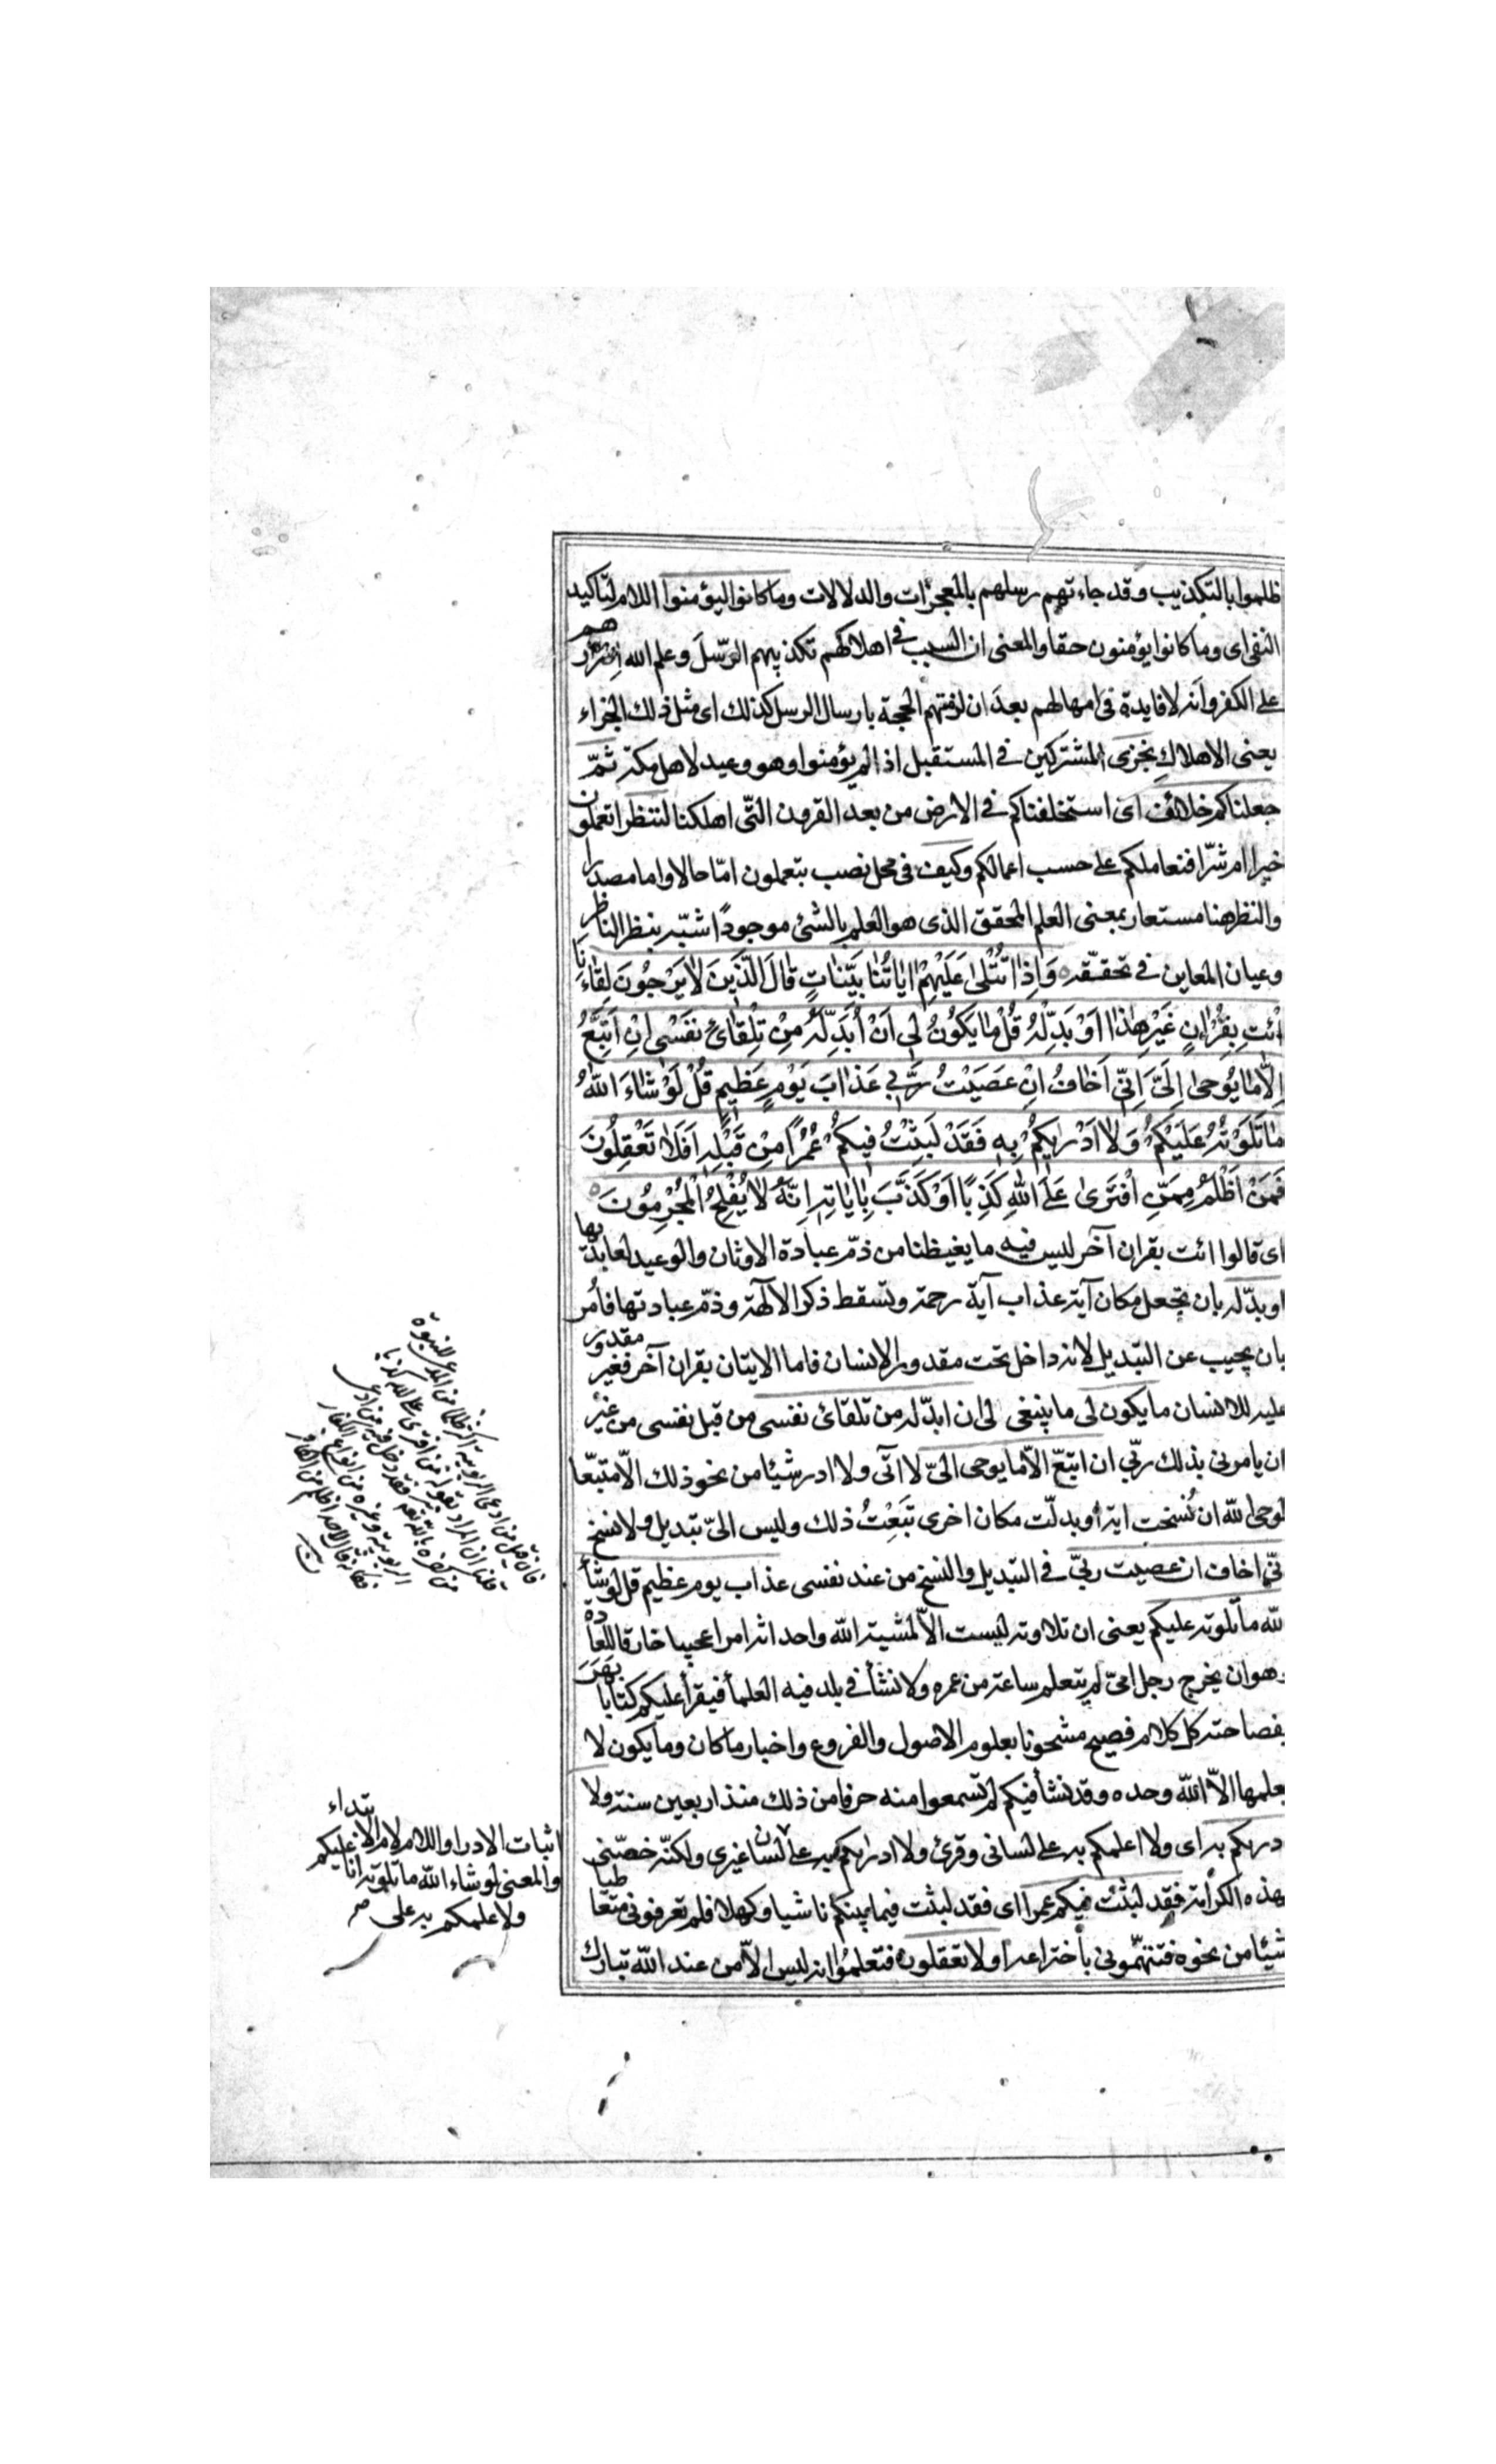 ظلموا بالتكذيب وقد جاءتهم رسلهم بالمعجزات والدلالات وما كانوا ليؤمنوا اللام لتاكيد
النفى اى وما كانوا يؤمنون حقا والمعنى ان السبب في اهلاكهم تكذيبهم الرسل وعلم الله اصرارهم
على الكفر وانه لا فايدة فى امهالهم بعد ان لزمتهم الحجة بارسال الرسل كذلك اى مثل ذلك الجزاء
يعنى الاهلاك نجزى المشتركين في المستقبل اذا لم يؤمنوا وهو وعيد لاهل مكة ثمّ
جعلناكم خلائف اى استخلفناكم في الارض من بعد القرون التّى اهلكنا لننظر اتعملون
خيرا ام شرّا فنعاملكم على حسب اعمالكم وكيف فى محل نصب بتعملون امّا حالا واما مصدرا
والنظر هنا مستعار بمعنى العلم المحقق الذى هو العلم بالشئ موجودًا شبّه بنظر الناظر
وعيان المعاين في تحققه وَاِذَا تُتْلىٰ عَلَيْهِمْ اٰيَاتُنَا بَيِّنَاتٍ قَالَ الَّذِينَ لَا يَرْجُونَ لِقَاءَنَا
ائْتِ بِقُرْاٰنٍ غَيْرِ هٰذَا اَوْ بَدِّلْهُ قُلْ مَا يَكُونُ لِى اَنْ اُبَدِّلَهُ مِنْ تِلْقَائِ نَفْسِى اِنْ اَتَّبِعُ
اِلَّا مَا يُوحىٰ اِلَىَّ اِنِّى اَخَافُ اِنْ عَصَيْتُ رَبِّي عَذَابَ يَوْمٍ عَظِيمٍ قُلْ لَوْ شَاءَ اللّٰهُ
مَا تَلَوْتُهُ عَلَيْكُمْ وَلَا اَدْرٰيكُمْ بِهِ فَقَدْ لَبِثْتُ فِيكُمْ عُمُرًا مِنْ قَبْلِهِ اَفَلَا تَعْقِلُونَ
فَمَنْ اَظْلَمُ مِمَّنِ افْتَرىٰ عَلَى اللّٰهِ كَذِبًا اَوْ كَذَّبَ بِاٰيَاتِهِ اِنَّهُ لَا يُفْلِحُ الْمُجْرِمُونَ
اى قالوا ائت بقران آخر ليس فيه ما يغيظنا من ذمّ عبادة الاوثان والوعيد لعابديها
او بدّله بان تجعل مكان آية عذاب آية رحمة وتسقط ذكر الآلهة وذمّ عبادتها فأمر
بان يجيب عن التبديل لانه داخل تحت مقدور الانسان فاما الايتان بقران آخر فغير مقدور
عليه للانسان ما يكون لى ما ينبغى لى ان ابدّله من تلقائ نفسى من قبل نفسى من غير
ان يامرنى بذلك ربّي ان اتبع الّا ما يوحى الىّ لا اتى ولا اذر شيئا من نحو ذلك الّا متبعا
لوحى الله ان نُسخت اية أو بدلّت مكان اخرى تَبِعْتُ ذلك وليس الىّ تبديل ولا نسخ
انّى اخاف ان عصيت ربيّ في التبديل والنسخ من عند نفسى عذاب يوم عظيم قل لو شأ
الله ما تلوته عليكم يعنى ان تلاوته ليست الّا لمشية الله واحداثه امرا عجيبا خارقا للعادة
وهو ان يخرج رجل امىّ لم يتعلم ساعة من عمره ولا نشأ في بلد فيه العلمأ فيقرأ عليكم كتابا بهر
بفصاحته كل كلام فصيح مشحونا بعلوم الاصول والفروع واخبار ما كان وما يكون لا
يعلمها الاّ الله وحده وقد نشأ فيكم لم تسمعوا منه حرفا من ذلك منذ اربعين سنة ولا
ادريكم به اى ولا اعلمكم به على لسانى وقرئ ولا ادراكم به على لسان غيرى ولكنّه خصّنى
بهذه الكرامة فقد لبثت فيكم عمرا اى فقد لبثت فيما بينكم ناشيا وكهلا فلم تعرفونى متعاطيا
شيئا من نحوه فتتهمّونى باختراعه اولا تعقلون فتعلموا انه ليس الاّ من عند الله تبارك
فان قيل من ادعى الربوبية اكثر ظلما من المدعى للنبوة
قلنا ان المراد بقوله فمن افترى على الله كذبا
اثبات الادرا واللام لام الابتداء
والمعنى لو شاء الله ما تلوته انا عليكم
ولا علمكم به على